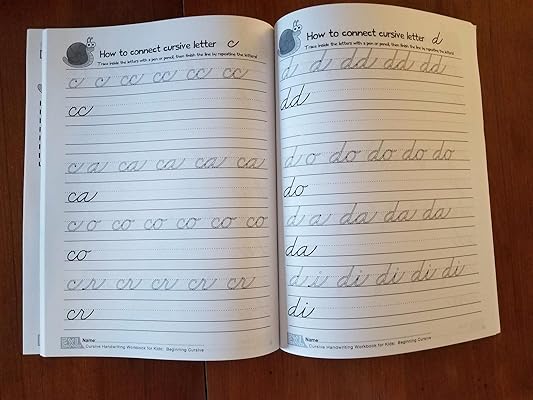 How to connect cursive letter c
Trace inside the letters with a pen or pencil, then finish the line by repeating the letters!
c c cc cc cc cc
cc
c a ca ca ca ca
ca
c o co co co co co
co
c r cr cr cr cr
cr
Name:
Cursive Handwriting Workbook for Kids: Beginning Cursive
How to connect cursive letter d
Trace inside the letters with a pen or pencil, then finish the line by repeating the letters!
d d dd dd dd
dd
d o do do do do
do
d a da da da
da
d i di di di di
di
Name:
Cursive Handwriting Workbook for Kids: Beginning Cursive